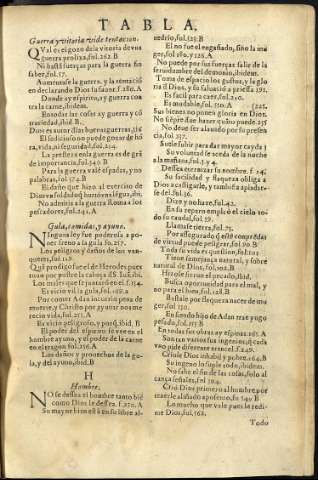 TABLA.
Guerra y vitoria vide tentacion.
QVal es el gozo de la vitoria de vna
guerra prolixa, fol.262.B
Ni basta fuerças para la guerra sin
saber, fol.57.
Aumentase la guerra, y la
en declarando Dios la fol.280.A
Donde ay espiritu, ay guerra con
tra la carne, ibidem.
En todas las cosas ay guerra y có
trariedad, ibid.B
Dios es autor dias
El sedicioso no puede gozar de hõ
ra, vida, ni seguridad, fol.254.
La presteza en la guerra es de grã
de importancia, fol.340.B
Para la guerra azé espadas, y no
palabras, fol.574.B
El daño que hizo al exercito de
ibi.
No admitia a la guerra Roma a los
pecadores, fol.241.A
Gula, comidas, y ayuno.
NIngun a poner a po-
ner freno a la gula fo.217.
Los peligros y daños de los van-
quetes, fol.112.
Que el de Herodes puer
mun por postre la cabeça d'S. Iuã ibi.
Los males que se juntarõ en el. f.254.
Es vicio vil la gula, fol.169.A
Por comer Adan incurrio pena de
muerte, y Christo por ayunar nos me
recio vida. fol.251.A
Es vicio peligroso, y por q, ibid. B
El poder del espiritu se vee en el
hombre ayuno, y el poder de la carne
en el tragon fol.256.A
Los daños y prouechos de la gu-
la, y del ayuno, ibid.B
H
Hombre.
NO se dessea el hombre tanto bié
como Dios le dessea. f.270.A
Su mayor bien está en su libre al-
uedrio, fol.528.B
El no fue el engañado, sino la mu
ger, fol.180. y 226.A
No puede por sus fuerças salir de la
seruidumbre del demonio, ibidem.
Toma de espacio los gustos, y la glo
ria d Dios, y da saluació a priessa 271.
Es facil para caer, fol.240.
Es mudable, fol.550.A
Sus bienes no ponen gloria en Dios.
No se puede hazer cuãto puede 257
No deue ser alauado por su presen
cia, fol.357.
Su la sube para dar mayor cayda
Su voluntad se aceda de la noche
a la mañana, fol.3. y 4.
Dessea eternizar su nombre. f.24
Su suciedad y flaqueza obliga a
Dios a castigarle, y tambié apiadar-
se del fol.36.
Dize y no haze, fol.42.
En su reparo empleó el cielo to-
do su caudal, fol.59.
Llamase tierra, fol.75.
Por assegurado q esté con prendas
de virtud puede peligrar, fol.90.B
Toda su vida es question, fol.121
Tiene semejança natural, y sobre
natural de Dios, fol.102.B
Hizole ruin el pecado, ibid.
Busca oportunidad para el mal, y
no para el bien, fol.128.B
Bastale por flaqueza nacer de mu
ger, fol.150.
En siendo hijo de Adan trae yugo
pesado, fol.157.B
En todas sus obras ay espinas. 165.A
Son tan varios sus ingenios, q cada
vno pide diferente trato, f.249.
Criole Dios inhabil y pobre. 264.B
Su ingenio lo suple todo, ibidem.
No sabe el fin de las cosas, solo al
cança señales, fol.304.
Crió Dios primero al hombre por
traerle al suelo aposento, fo.349.B
Lo mucho que vale pues le redi-
me Dios, fol.162.
Todo